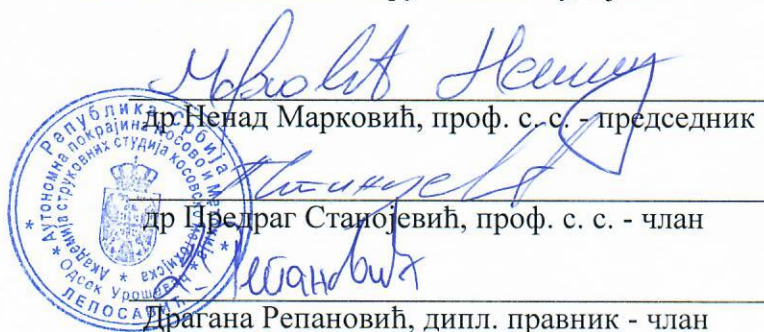 др Ненад Марковић, проф. с. с. - председник
др Предраг Станојевић, проф. с. с. - члан
Драгана Репановић, дипл. правник - члан
Република Србија
Аутономна покрајина Косово и
Академија струковних студија косовско
Одсек Урошевац
ЛЕПОСАВИЋ